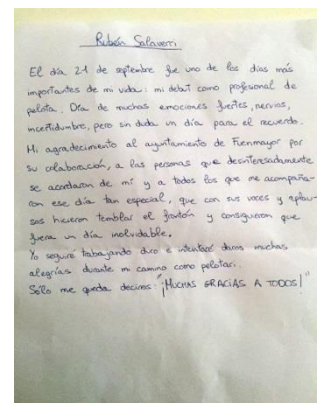 Rubén Salaverri
El día 21 de septiembre fue uno de los días más
importantes de mi vida: mi debut como profesional de
pelota. Día de muchas emociones fuertes, nervios,
incertidumbre, pero sin duda un día para el recuerdo.
Mi agradecimiento al ayuntamiento de Fuenmayor por
su colaboración, a las personas que desinteresadamente
se acordaron de mí y a todos los que me acompaña-
ron ese día tan especial, que con sus voces y aplau-
sos hicieron temblar el frontón y consiguieron que
fuera un día inolvidable.
Yo seguiré trabajando duro e intentaré daros muchas
alegrías durante mi camino como pelotari.
Sólo me queda deciros: "¡MUCHAS GRACIAS A TODOS!"